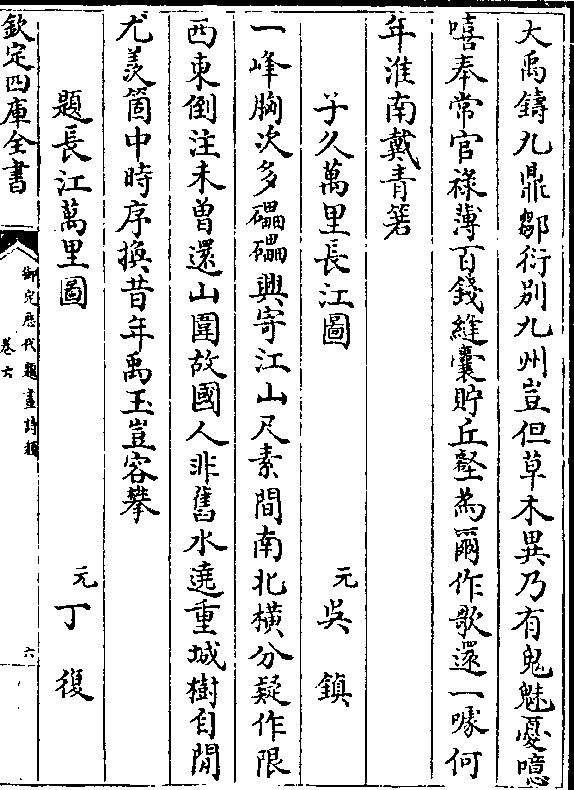 大禹鑄九鼎鄒衍別九州豈但草木異乃有鬼魅憂噫
嘻奉常官祿薄百錢縫囊貯丘壑為爾作歌還一噱何
年淮南戴青箬
子久萬里長江圖
元吳鎮
一峰胸次多礧礧興寄江山尺素間南北橫分疑作限
西東倒注未曽還山圍故國人非舊水遶重城樹自閒
尤羡箇中時序換昔年禹玉豈容攀
題長江萬里圖
元丁復
欽定四庫全書
御定歷代題畫詩類
卷六
六